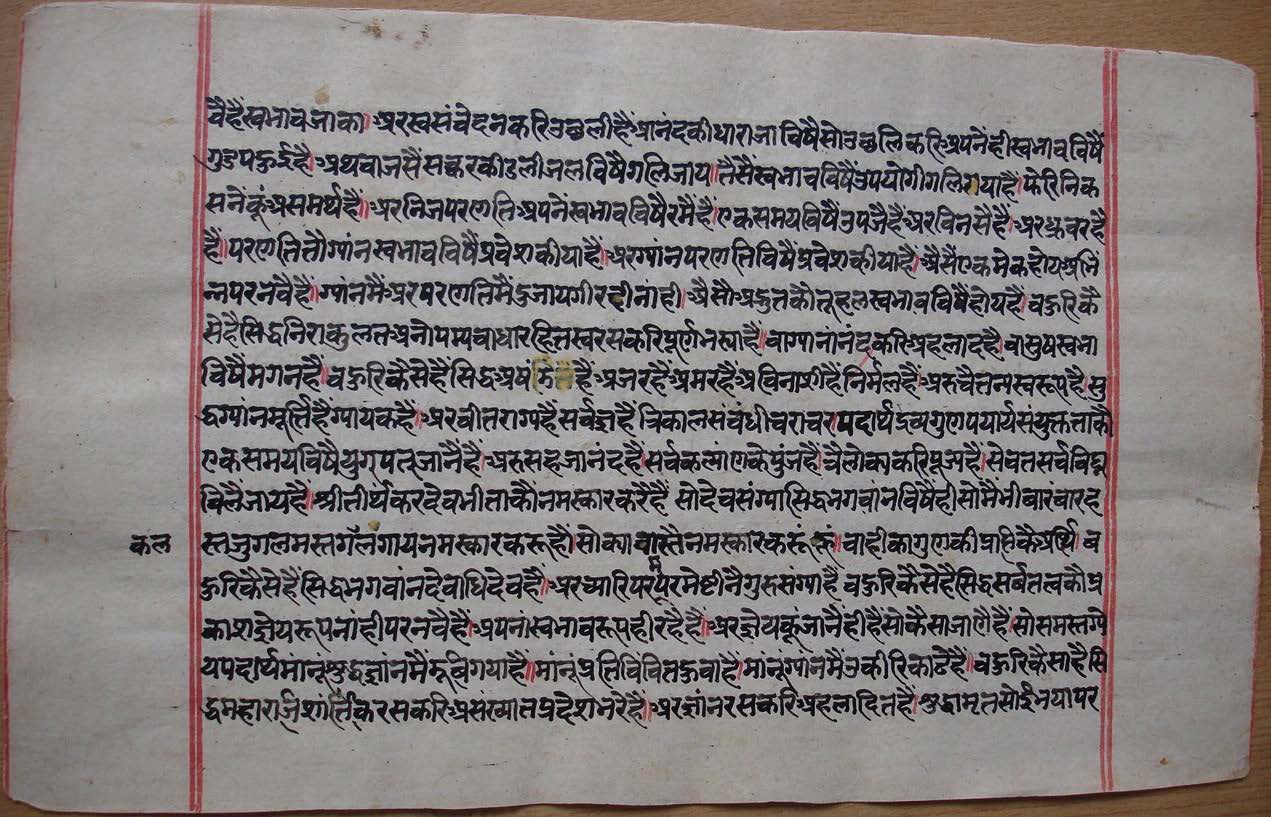 वैहैं स्वभाव जाका। अर स्वसंवेदन करि उछली हैं आनंद की धारा जा विषै सो उछलि करि अपनें ही स्वभाव विषैं
गुडप हुई है। अथवा जैसैं सक्कर की डली जल विषै गलि जाय। तैसैं स्वभाव विषैं उपयोगी गलि गया हैं। फेरि निक
सनें कूं असमर्थ हैं॥ अर निज परणति अपनें स्वभाव विषै रमैं हैं। एक समय विषैं उपजै हैं अर विनसै हैं। अर ध्रुव रहै
हैं। परणति तौ ग्यांन स्वभाव विषैं प्रवेश कीया हैं। अर ग्यांन परणति विषैं प्रवेश कीया हैं। अैसैं एकमेक होय अभिं
न्न परनवै हैं। ग्यांन मैं अर परणति मैं दुजायगी रही नांही। अैसौ अद्भुत कौतूहल स्वभाव विषैं होय हैं। बहुरि कै
से है सिद्ध निराकुलत अनोपम्य बाधा रहित स्वरस करि पूर्ण भस्या हैं॥ वा ग्यानांनंद करि अहलाद है। वा सुष स्वभा
विषैं मगन हैं। बहुरि कैसे हैं सिद्ध अषंडित हैं अजर हैं। अमर हैं। अविनाशी हैं निर्मल हैं। अरु चैतन्य स्वरूप है। सु
द्ध ग्यांन मूर्त्ति हैं ग्यायक हैं। अर वीतराग्य हैं सर्वज्ञ हैं त्रिकाल संबंधी चराचर पदार्थ द्रव्य गुण पर्याय संयुक्त ताकौ
एक समय विषैं युगपत् जानैं हैं। अरु सहजानंद है। सर्व कल्याण के पुंज हैं। त्रैलोक्य करि पूज्य हैं। सेवत सर्व विघ्न
विलै जाय है। श्री तीर्थंकर देव भी ताकौं नमस्कार करै हैं सो देव संग्या सिद्ध भगवांन विषैं ही सो मैं भी बारंबार ह
कल
स्त जुगल मस्तग कै लगाय नमस्कार करू हैं। सो क्या वास्तै नमस्कार करूं हूं। वाही का गुण की प्राप्ति कै अर्थि ब
हुरि कैसे हैं सिद्ध भगवांन देवाधिदेव है॥ अर च्यारि परम परमेष्टी नै गुरु संग्या है बहुरि कैसे है सिद्ध सर्व तत्व कौ प्र
काश ज्ञेय रूप नांही परनवै हैं। अपनां स्वभाव रूप ही रहै हैं॥ अर ज्ञेय कूं जानैं ही हैं सो कैसा जाणै हैं सो समस्त ग्ये
य पदार्थ मांनूं शुद्ध ज्ञांन मैं डूबि गया हैं॥ मांनूं प्रतिबिंबित हुवा हैं। मांनूं ग्यांन मैं उकीरि काढे हैं। बहुरि कैसा है सि
द्ध महाराजि शांतिक रस करि असंख्यात प्रदेश भरे हैं। अर ज्ञांन रस करि अहलादित है। शुद्धामृत सोई भया पर